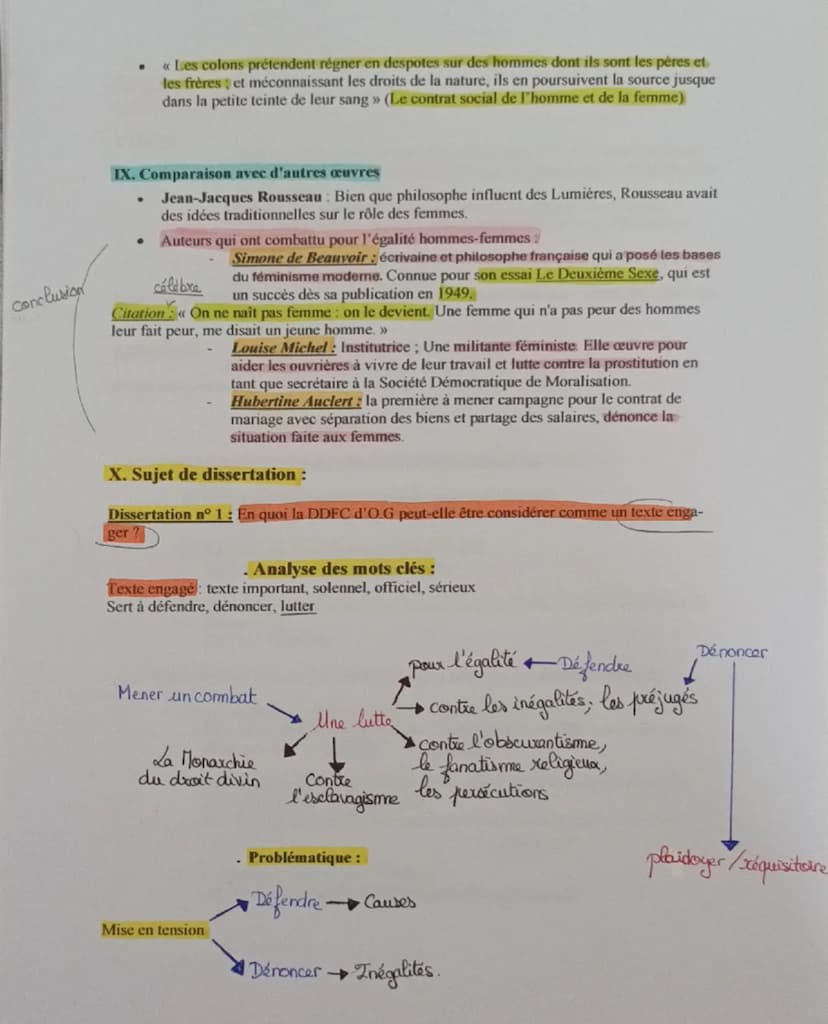 • « Les colons prétendent régner en despotes sur des hommes dont ils sont les pères et
les frères ; et méconnaissant les droits de la nature, ils en poursuivent la source jusque
dans la petite teinte de leur sang » (Le contrat social de l'homme et de la femme)
IX. Comparaison avec d'autres œuvres
• Jean-Jacques Rousseau : Bien que philosophe influent des Lumières, Rousseau avait
des idées traditionnelles sur le rôle des femmes.
• Auteurs qui ont combattu pour l'égalité hommes-femmes :
- Simone de Beauvoir : écrivaine et philosophe française qui a posé les bases
du féminisme moderne. Connue pour son essai Le Deuxième Sexe, qui est
un succès dès sa publication en 1949.
conclusion
célèbre
Citation : « On ne naît pas femme : on le devient. Une femme qui n'a pas peur des hommes
leur fait peur, me disait un jeune homme. »
- Louise Michel : Institutrice ; Une militante féministe. Elle œuvre pour
aider les ouvrières à vivre de leur travail et lutte contre la prostitution en
tant que secrétaire à la Société Démocratique de Moralisation.
- Hubertine Auclert : la première à mener campagne pour le contrat de
mariage avec séparation des biens et partage des salaires, dénonce la
situation faite aux femmes.
X. Sujet de dissertation :
Dissertation n° 1 : En quoi la DDFC d'O.G peut-elle être considérer comme un texte enga-
ger ?
. Analyse des mots clés :
Texte engagé : texte important, solennel, officiel, sérieux
Sert à défendre, dénoncer, lutter
pour l'égalité ← Défendre
Dénoncer
Mener un combat
contre les inégalités, les préjugés
Une lutte
contre l'obscurantisme,
le fanatisme religieux,
les persécutions
La Monarchie
du droit divin
Contre
l'esclavagisme
plaidoyer / réquisitoire
. Problématique :
Défendre → Causes
Mise en tension
Dénoncer → Inégalités.